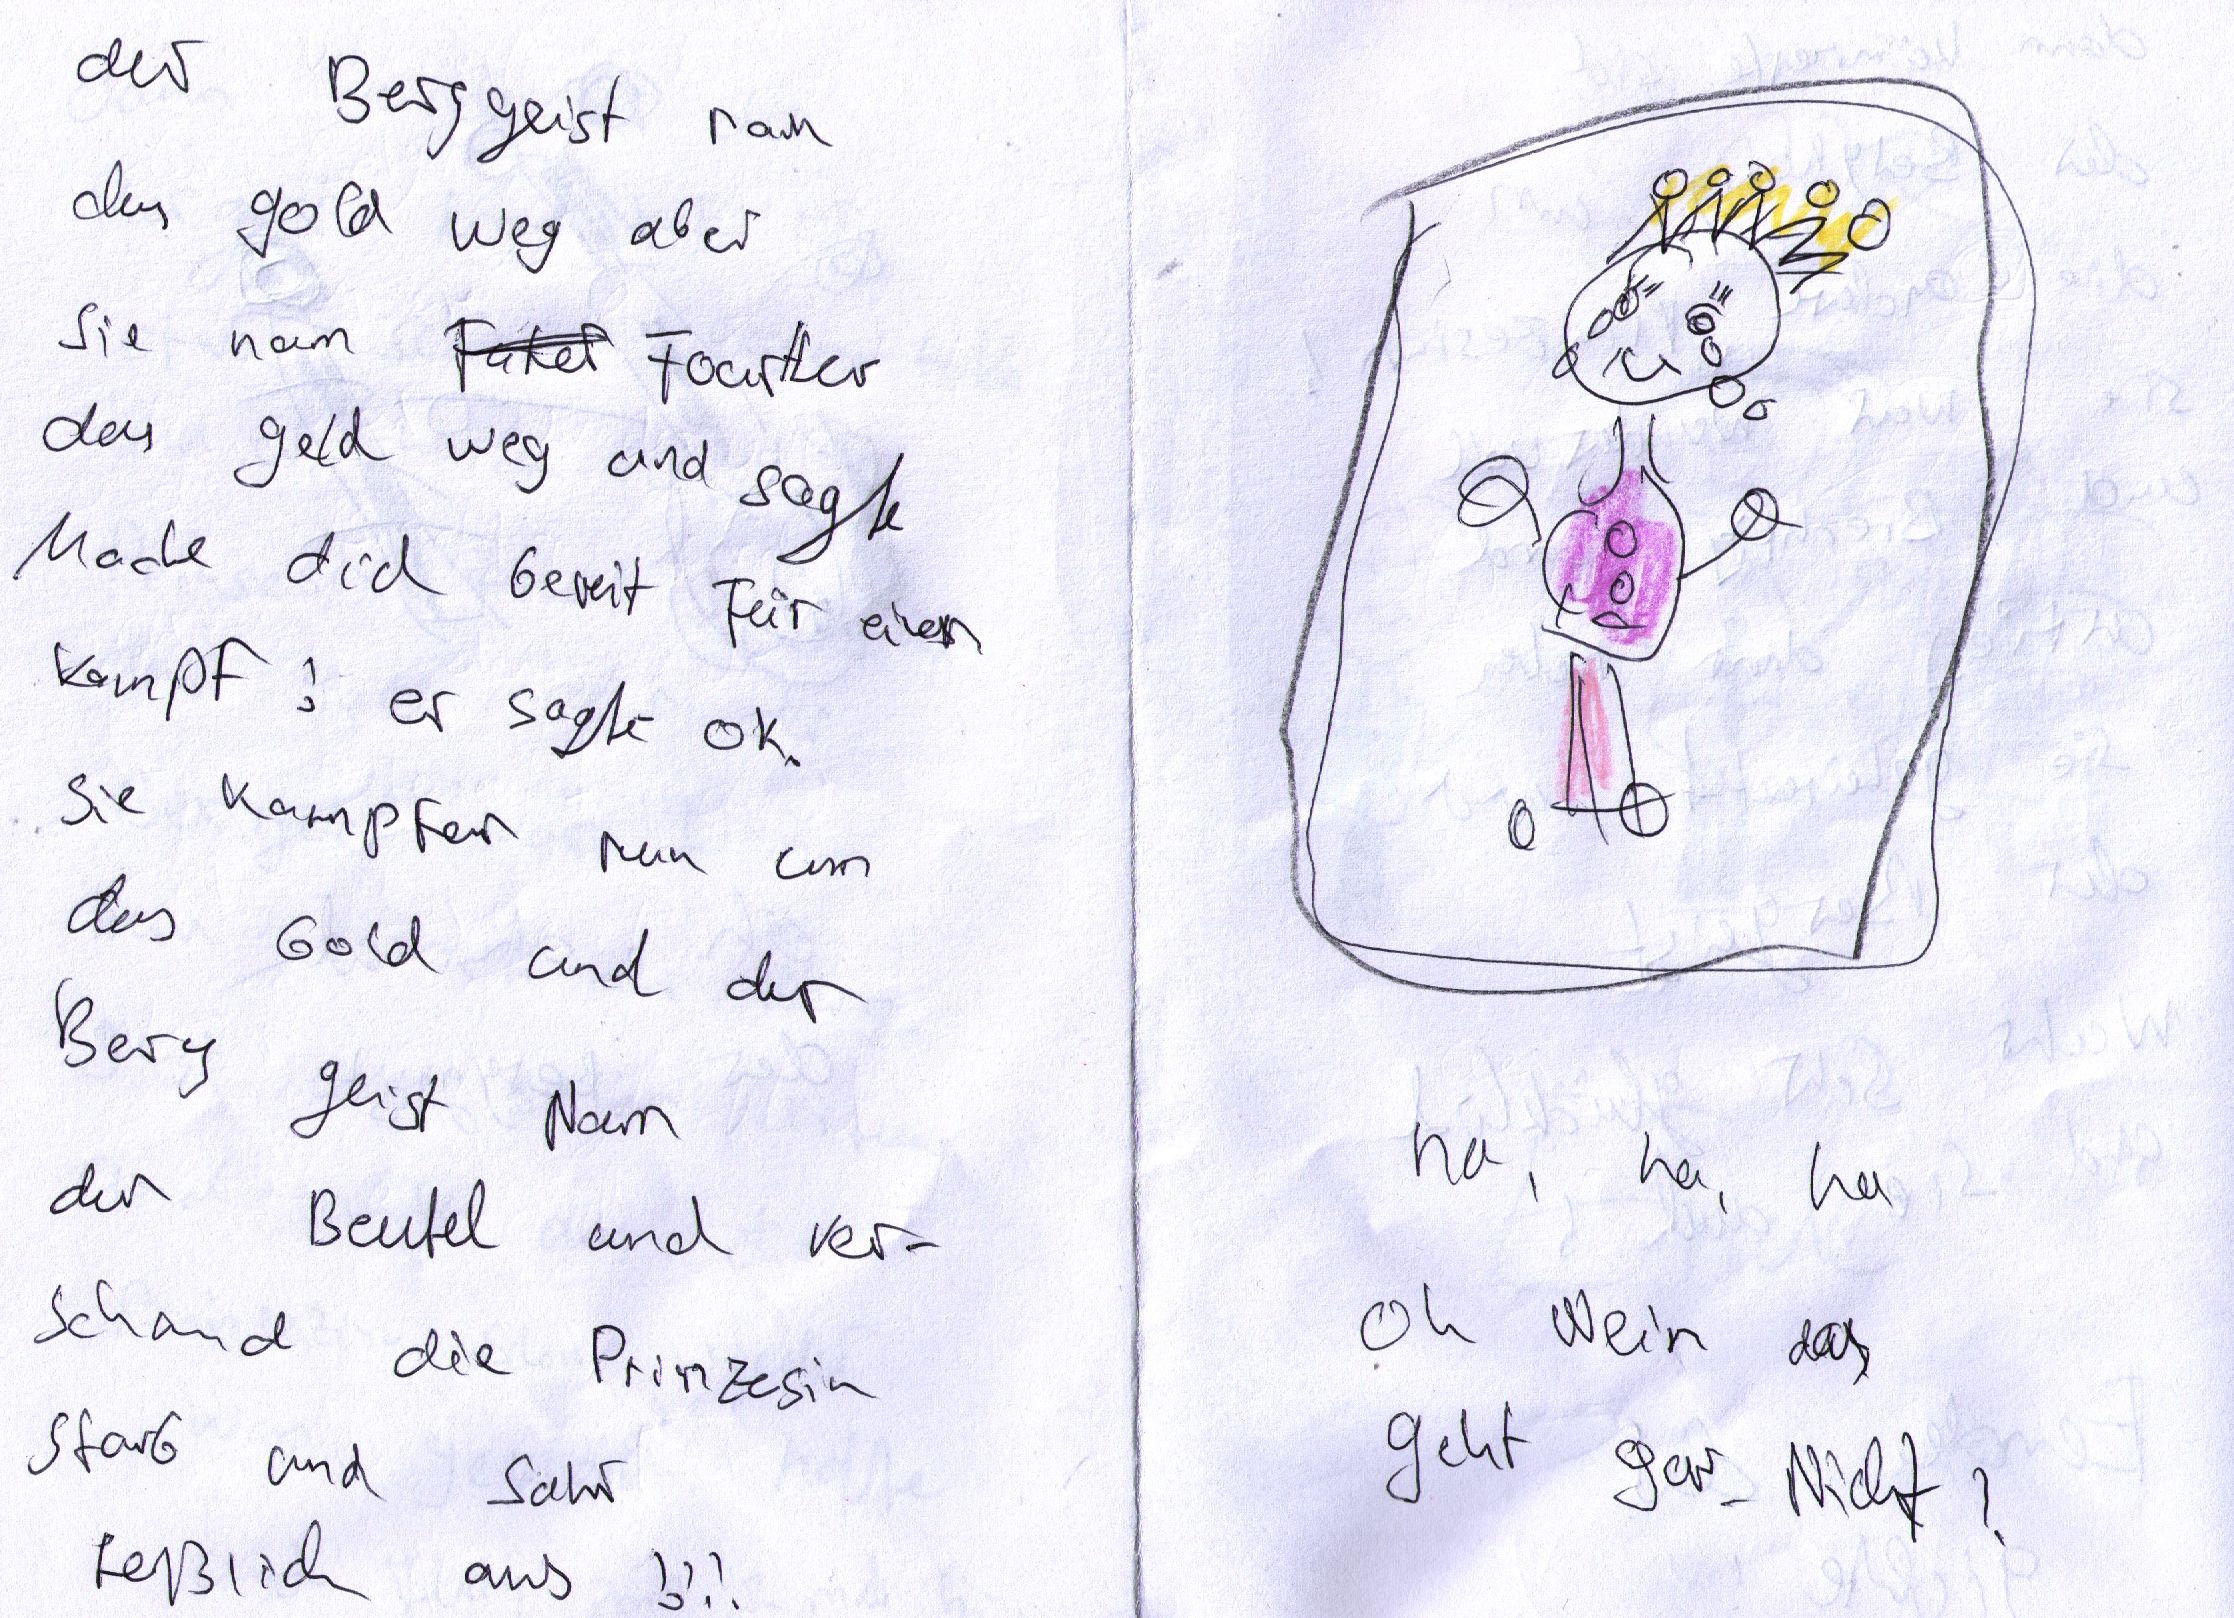 der Berggeist nam
das gold weg aber
sie nam Vater
das geld weg und sagte
Mache dich bereit Für einen
kampf! er sagte ok.
sie kampfen nun um
das Gold und der
Berg geist Nam
den Beutel und ver-
schand die Prinzesin
starb und sahr
heßlich aus !!!
ha, ha, ha
oh Nein das
geht gar Nicht!